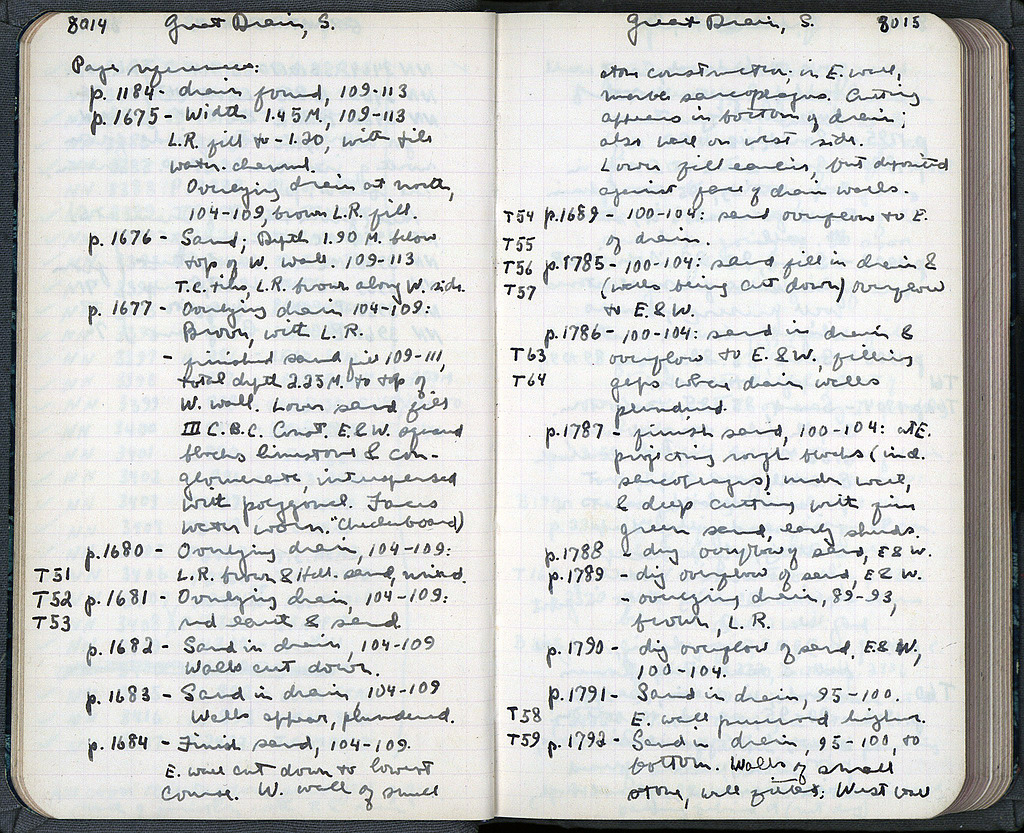 8014 Great Drain, S.
Page references:
p. 1184 - drain found, 109-113
p. 1675 - Width 1.45 M., 109-113
L.R. fill to -1.20, with tile
water channel.
Overlying drain at north,
104-109, brown L.R. fill.
p. 1676 - Sand; Depth 1.90 M. below
top of W. wall. 109-113
T.C. tiles, L.R. brown along W. side.
p. 1677 - Overlying drain 104-109:
Brown, with L.R.
- finished sand fill 109-111,
total depth 2.25 M. to top of
W. wall. Lower sand fill
III C. B.C. Const. E. & W. squared
blocks limestone & con-
glomerate, interspersed
with polygonal. Faces
water worn. "Checkerboard)
p. 1680 - Overlying drain, 104-109:
T51 L.R. brown & Hell. sand, mixed.
T52 p. 1681 - Overlying drain, 104-109:
T53 red earth & sand
p. 1682 - Sand in drain, 104-109
Walls cut down.
p. 1683 - Sand in drain, 104-109
Walls appear, plundered.
p. 1684 - Finish sand, 104-109.
E. wall cut down to lowest
course. W. wall of small
Great Drain, S. 8015
stone construction; in E. wall,
marble sarcophagus. Cutting
appears in bottom of drain;
also well on west side.
Lower fill earlier, but deposited
against face of drain walls.
T54 p. 1689 - 100-104: sand overflow to E.
T55 of drain.
T56 p. 1785 - 100-104: sand fill in drain &
T57 (walls being cut down) overflow
to E & W.
p. 1786 - 100-104: sand in drain &
T63 overflow to E. & W., filling
T64 gaps where drain walls
plundered.
p. 1787 - finish sand, 100-104: at E.
projecting rough blocks (incl.
sarcophagus) under wall,
& deep cutting with fine
green sand, early sherds.
p. 1788 - dig overflow of sand, E & W.
p. 1789 - dig overflow of sand, E & W.
- overlying drain, 89-93,
brown, L.R.
p. 1790 - dig overflow of sand, E & W,
100-104.
p. 1791 - Sand in drain, 95-100.
T58 E. wall preserved higher.
T59 p. 1792 - Sand in drain, 95-100, to
bottom. Walls of small
stone, well fitted. West wall